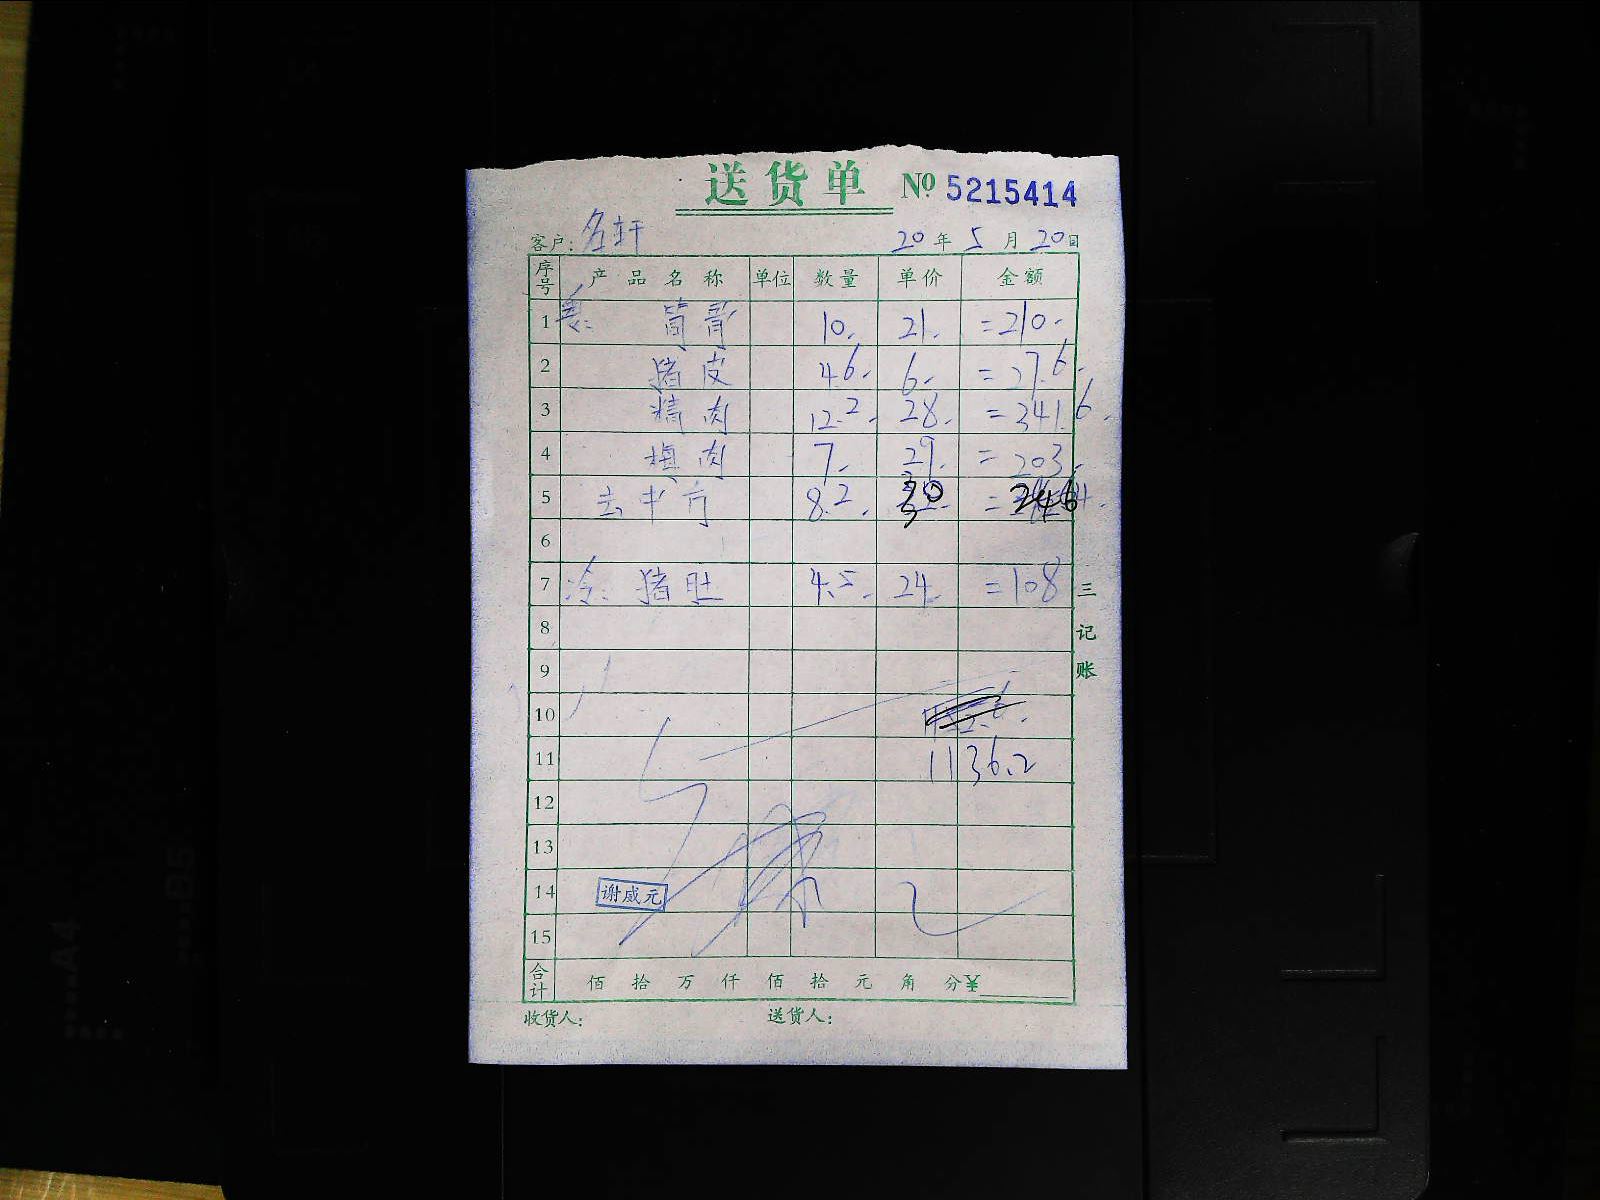 送货单 № 5215414
客户: 名轩 20年5月20日
序号 产品名称 单位 数量 单价 金额
1 筒骨 10. 21. =210.
2 猪皮 4.6. 6. =27.6.
3 精肉 12.2. 28. =341.6.
4 梅肉 7. 29. =203.
5 去中方 8.2. 30 =246
6
7 冷: 猪肚 4.5. 24. =108
8
9
10
11 1136.2
12
13
14 谢威元
15
合计 佰 拾 万 仟 佰 拾 元 角 分¥
收货人: 送货人:
三记账